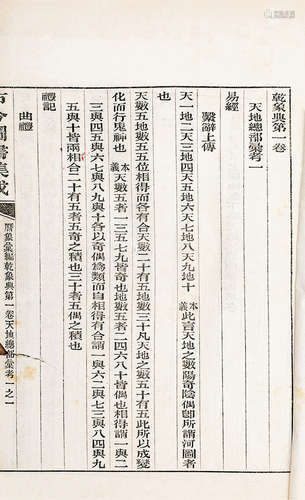 乾象典第一卷
天地總部彙考一
易經
繫辭上傳
天一地二天三地四天五地六天七地八天九地十 本義 此言天地之數陽奇陰偶卽所謂河圖者
天數五地數五五位相得而各有合天數二十有五地數三十凡天地之數五十有五此所以成變
化而行鬼神也 本義 天數五者一三五七九皆奇也地數五者二四六八十皆偶也相得謂一與二
三與四五與六七與八九與十各以奇偶爲類而自相得有合謂一與六二與七三與八四與九
五與十皆兩相合二十有五者五奇之積也三十者五偶之積也
禮記
曲禮
古今圖書集成
曆象彙編乾象典第一卷天地總部彙考一之一